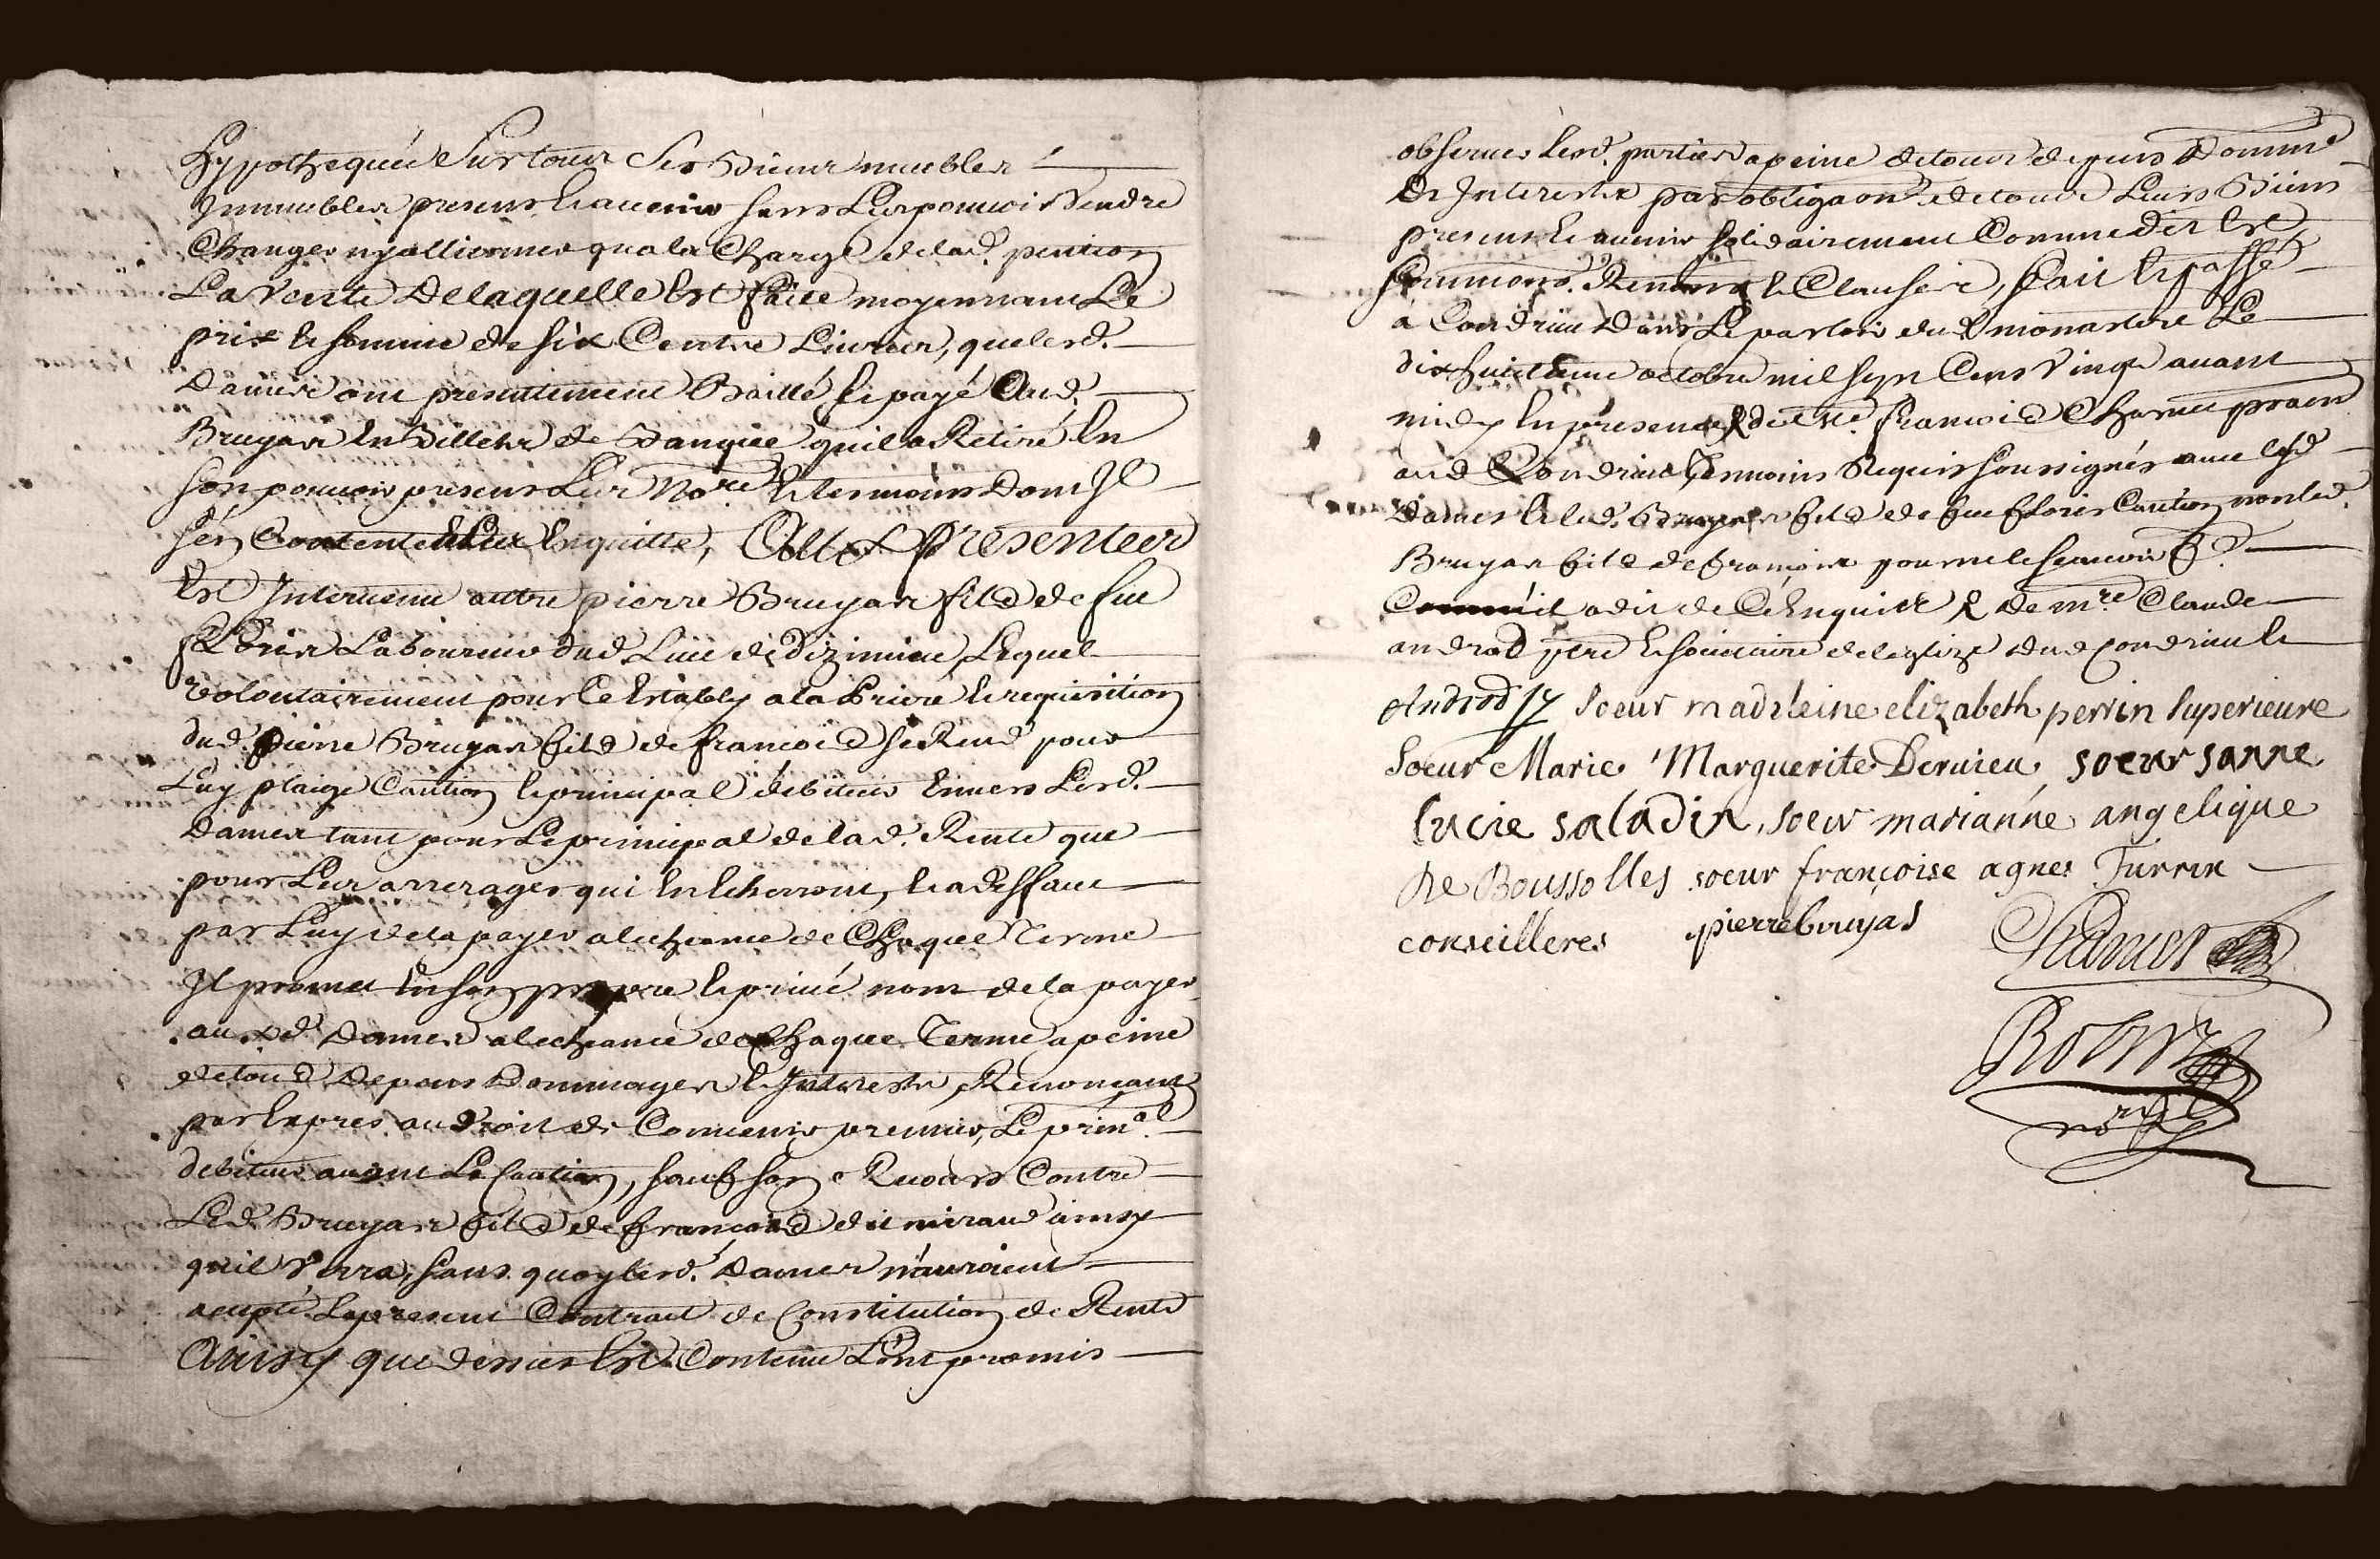 hypothequée Sur tous Ses Biens meubles
Immeubles presens & avenir sans Les pouvoir Vendre
Changer ny allienner qua la Charge de lad. pention
La Vente De laquelle Est faite moyennant Le
prix & somme de six Cents Livres, que lesd.
Dames ont presentement Baillé & payé Aud.
Bruyas En Billets de Banque quil a Retiré En
son pouvoir presens Les No.re & tesmoins Dont Il
sen Contente & Les En quitte, A Ces presentes
Est Intervenu autre pierre Bruyas fils de feu
floris Laboureur dud. Lieu de Dizimieu Lequel
volontairement pour Ce Estably a la priere & requisition
dud. pierre Bruyas fils de francois se Rend pour
Luy plaige Caution & principal debiteur Envers Lesd.
Dames tant pour Le principal de lad. Rente que
pour Les arrerages qui En Echerront, & a deffaut
par Luy de la payer a lecheance de Chaque Terme
Il promet En son propre & privé nom de la payer
auxd. Dames a lecheance de Chaque Terme a peine
de tous Depens Dommages & Interests, Renonçant
par Expres au droit de Convenir premier, Le prin.al
debiteur avant La Caution, sauf son Recours Contre
Led. Bruyas fils de francois dit miraud ainsy
quil Verra, sans quoy lesd. Dames n'auroient
accepté Le present Contract de Constitution de Rente
Ainsy que dessus Est Contenu L'ont promis
observer Lesd. parties a peine de tous depens Domm.es
& Interests par obliga.on de tous Leurs Biens
presens & avenir solidairement Comme Dit Est
soumi.ons Renon.ns & Clauses, fait & passé
a Condrieu Dans Le parloir dud. monastere Le
dix huitieme octobre mil sept Cens Vingt avant
midy En presence de francois praen
aud Condrieu Temmoins Requis soussignés avec lesd
Dames & led. Bruyas fils de feu floris Caution non led.
Bruyas fils de francois pour ne le scavoir
a dit de Ce Enquis & De m.re Claude
androd ptre & societaire de leglize dud Condrieu &
Androd soeur madeleine elizabeth perrin superieure
soeur Marie Marguerite Dervieu soeur sanne
lucie saladin, soeur marianne angelique
De Boussolles soeur françoise agnes Turrin
conseilleres pierre bruyas
Robin
no.re